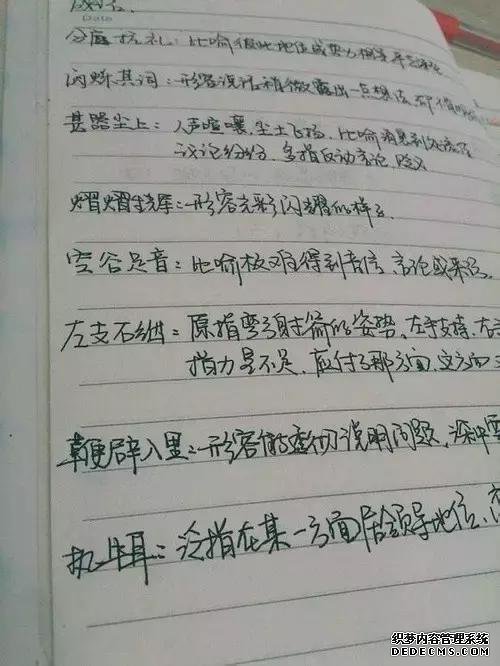 成语.
Date
分庭抗礼:比喻彼此地位或势力相等平起平坐
闪烁其词:形容说话稍微露出一点想法,不
甚嚣尘上:人声喧嚷,尘土飞扬.比喻消息到处流传
议论纷纷,多指反动言论.贬义
熠熠生辉:形容光彩闪耀的样子.
空谷足音:比喻极难得到音信、言论或来访.
左支右绌:原指弯弓射箭的姿势,左手支持,右
指力量不足,应付了那方面,这方面
鞭辟入里:形容能透彻说明问题,深中
执牛耳:泛指在某一方面居领导地位,
织梦内容管理系统
DEDECMS.COM